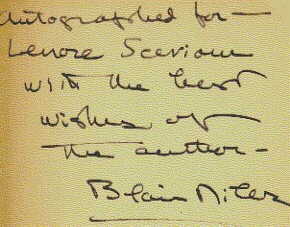 Autographed for —
Lenore
with the best
wishes of
the author —
Blair Niles